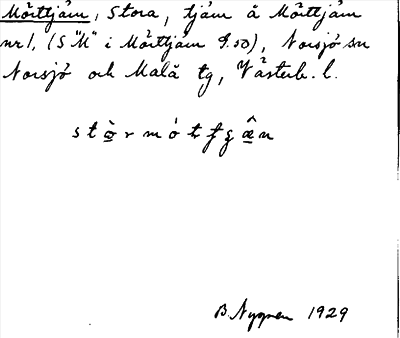 Mörttjärn, Stora, tjärn å Mörttjärn
nr 1, (S "M" i Mörttjärn 9.50), Norsjö sn
Norsjö och Malå tg, Västerb. l.
B. Nygren 1929